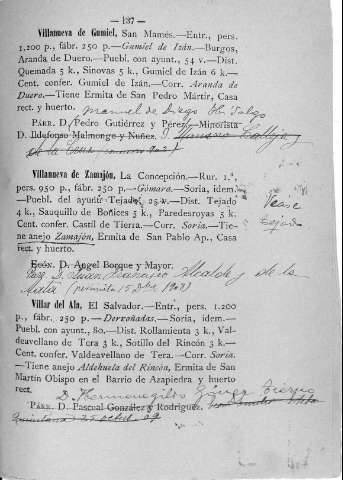 — 137 —
Villanueva de Gumiel, San Mamés.—Entr., pers.
1.200 p., fábr. 250 p.—Gumiel de Izán.—Burgos,
Aranda de Duero.—Puebl. con ayunt., 54 v.—Dist.
Quemada 5 k., Sinovas 5 k., Gumiel de Izán 6 k.—
Cent. confer. Gumiel de Izán.—Corr. Aranda de
Duero.—Tiene Ermita de San Pedro Mártir, Casa
rect. y huerto.
Manuel de Diego
Párr. D. Pedro Gutiérrez y Pérez.—Minorista
D. Ildefonso Malmonge y Nuñez.
de la
Villanueva de Zamajón, La Concepción.—Rur. 1.ª,
pers. 950 p., fábr. 250 p.—Gómara.—Soria, idem.
—Puebl. del ayunt. Tejado, 25 v.—Dist. Tejado
4 k., Sauquillo de Boñices 5 k., Paredesroyas 5 k.
Cent. confer. Castil de Tierra.—Corr. Soria.—Tie-
ne anejo Zamajón, Ermita de San Pablo Ap., Casa
rect. y huerto.
Vease
Tejado
Ecón. D. Angel Borque y Mayor.
D. Juan Francisco Alcalde y de la
15 Dbre
Villar del Ala, El Salvador.—Entr., pers. 1.200
p., fábr. 250 p.—Derroñadas.—Soria, idem.—
Puebl. con ayunt., 80,—Dist. Rollamienta 3 k., Val-
deavellano de Tera 3 k., Sotillo del Rincón 3 k.—
Cent. confer. Valdeavellano de Tera.—Corr. Soria.
—Tiene anejo Aldehuela del Rincón, Ermita de San
Martín Obispo en el Barrio de Azapiedra y huerto
rect.
D. Hermenegildo
Párr. D. Pascual González y Rodríguez.
Quintana 25